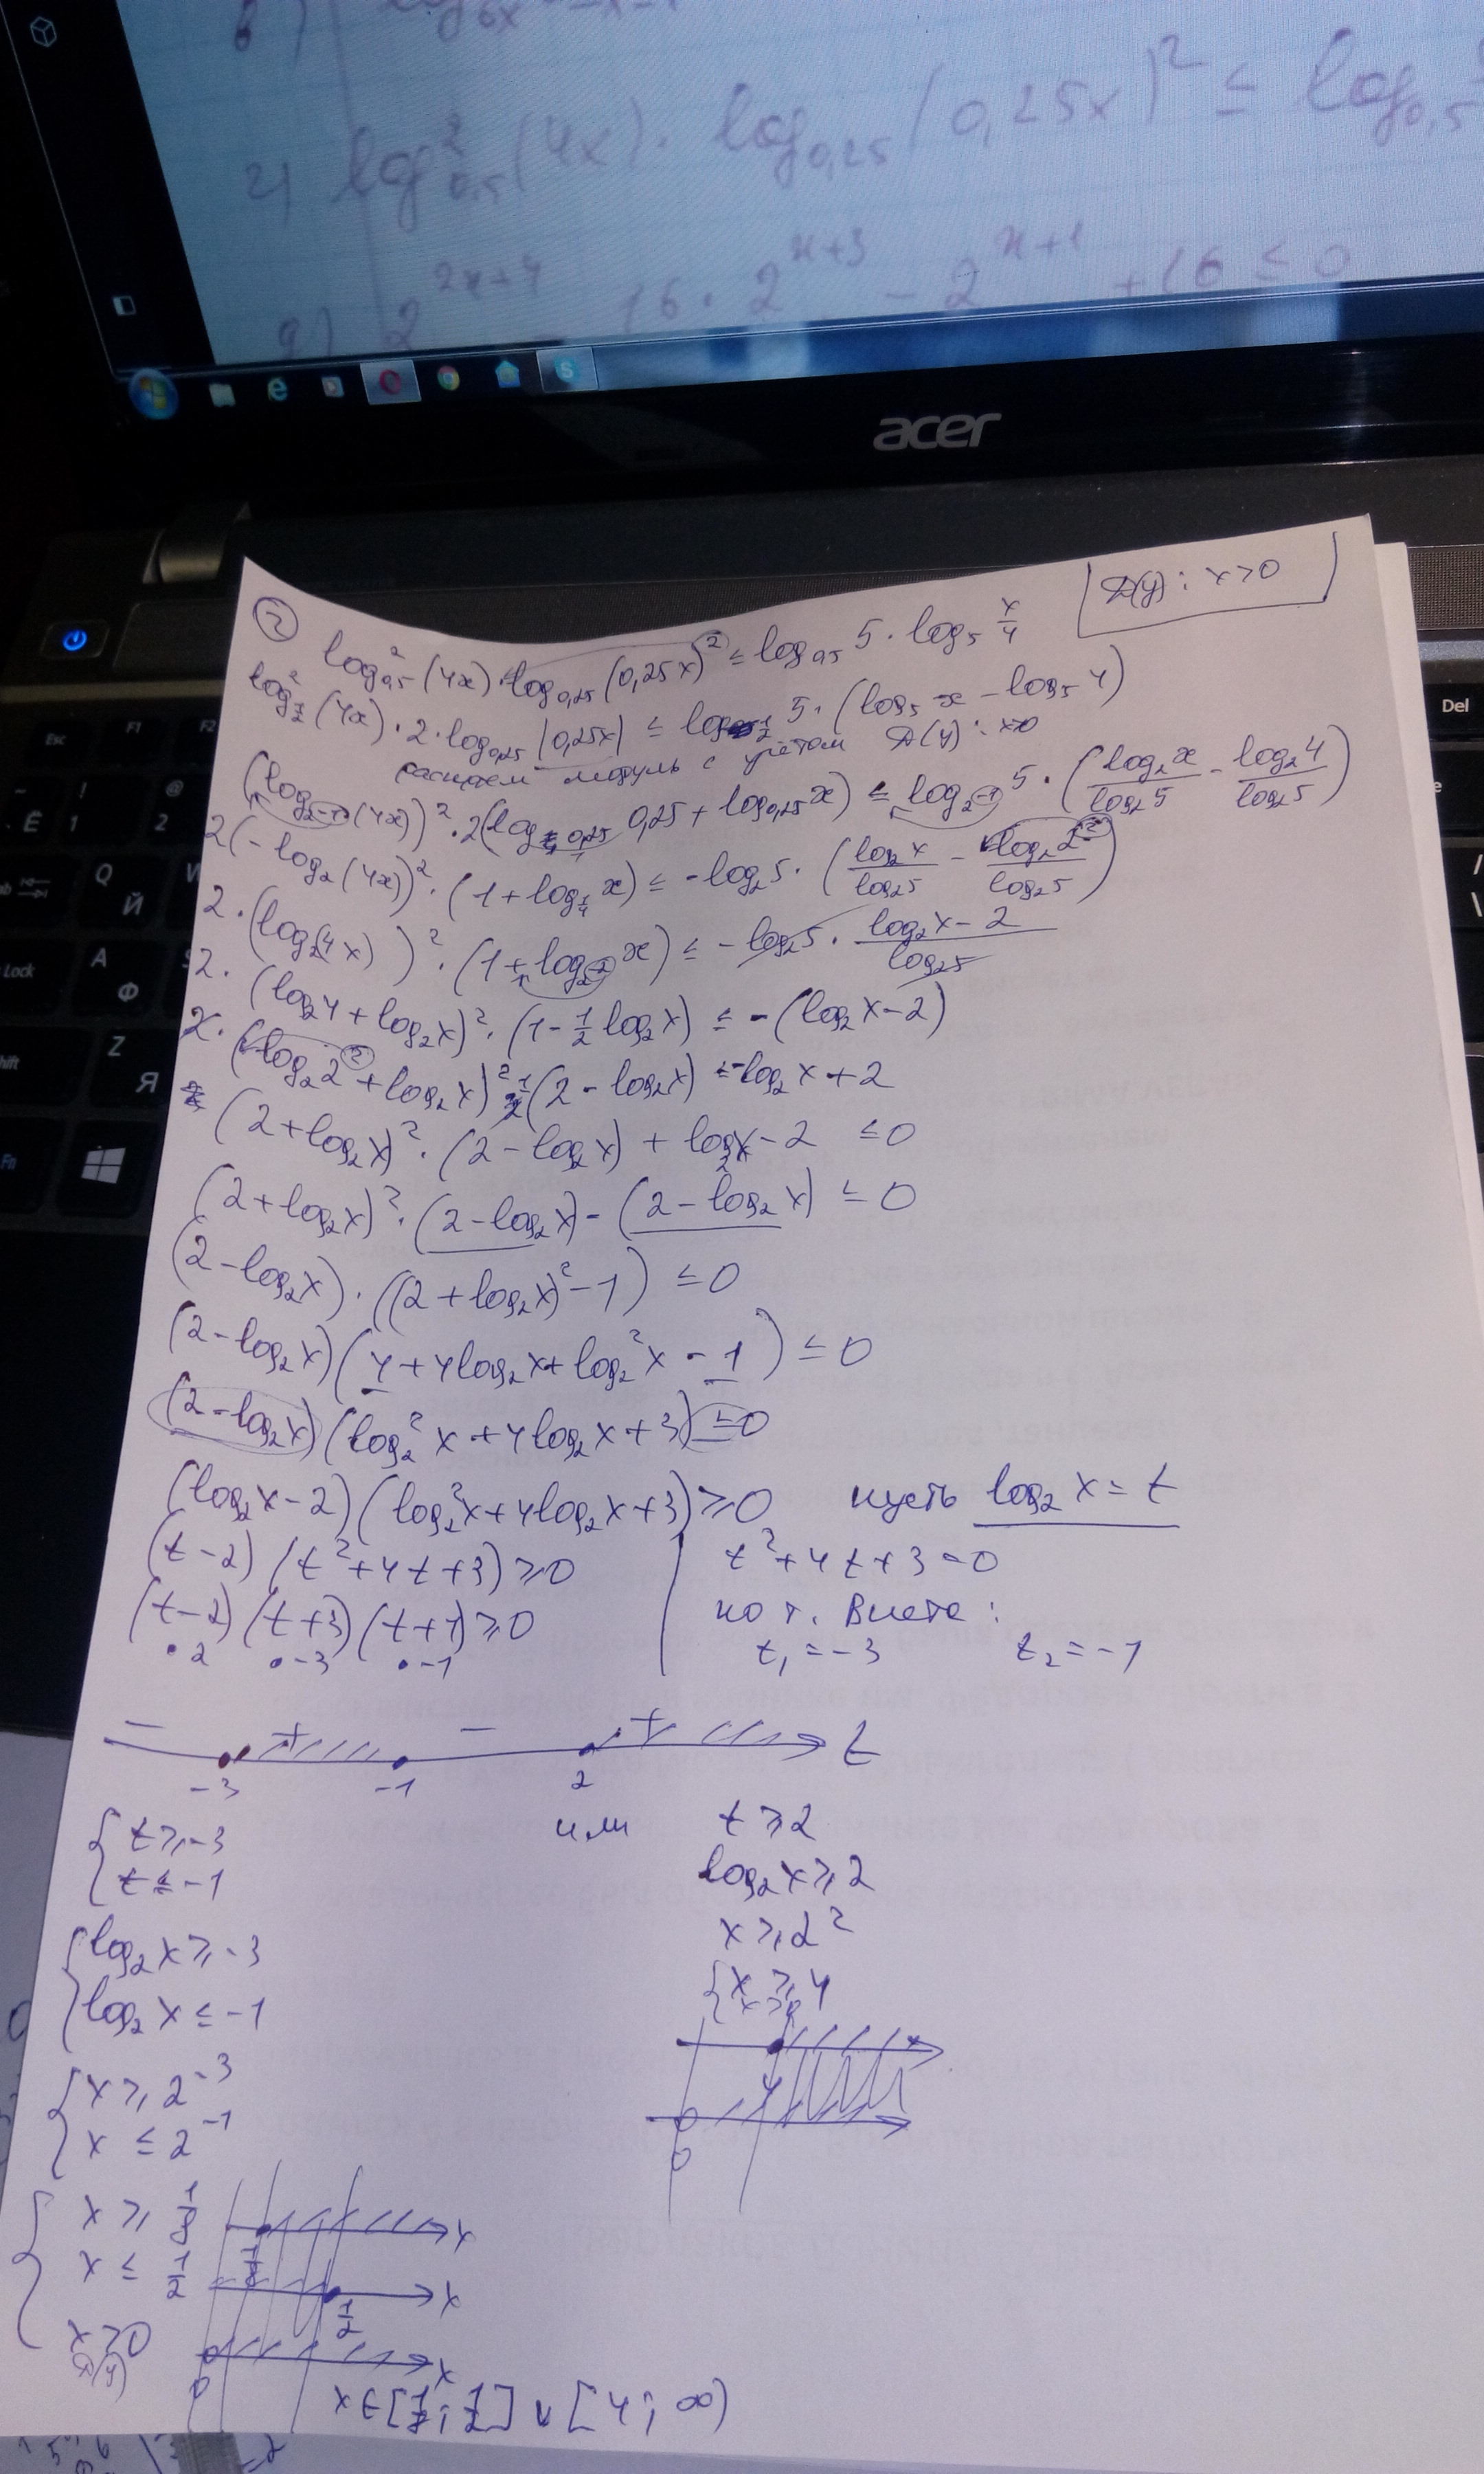 г) log²₀,₅(4x)·log₀,₂₅(0,25x)² ≤ log₀,₅
2^(2x+4) 16·2^(x+3) - 2^(x+1) + 16 ≤ 0
acer
D(y): x>0
log²₀,₅(4x)·log₀,₂₅(0,25x)² ≤ log₀,₅ 5·log₅ x/4
log²_(1/2)(4x)·2·log₀,₂₅|0,25x| ≤ log_(1/2) 5·(log₅ x - log₅ 4)
модуль с учётом D(y): x>0
(log_(2⁻¹)(4x))²·2(log₀,₂₅ 0,25 + log₀,₂₅ x) ≤ log_(2⁻¹) 5·(log₂x/log₂5 - log₂4/log₂5)
2(-log₂(4x))²·(1+log_(1/4) x) ≤ -log₂5·(log₂x/log₂5 - log₂2²/log₂5)
2·(log₂(4x))²·(1+log_(2⁻²) x) ≤ -log₂5·(log₂x-2)/log₂5
2·(log₂4+log₂x)²·(1-1/2 log₂x) ≤ -(log₂x-2)
2·(log₂2²+log₂x)² 1/2(2-log₂x) ≤ -log₂x+2
(2+log₂x)²·(2-log₂x)+log₂x-2 ≤ 0
(2+log₂x)²·(2-log₂x)-(2-log₂x) ≤ 0
(2-log₂x)·((2+log₂x)²-1) ≤ 0
(2-log₂x)(4+4log₂x+log₂²x-1) ≤ 0
(2-log₂x)(log₂²x+4log₂x+3) ≤ 0
(log₂x-2)(log₂²x+4log₂x+3) ≥ 0 пусть log₂x=t
(t-2)(t²+4t+3) ≥ 0 t²+4t+3=0
(t-2)(t+3)(t+1) ≥ 0 по т. Виета:
·2 ·-3 ·-1 t₁=-3 t₂=-1
- + - + t
-3 -1 2
t ≥ -3 или t ≥ 2
t ≤ -1 log₂x ≥ 2
log₂x ≥ -3 x ≥ 2²
log₂x ≤ -1 x ≥ 4
x>0
x ≥ 2⁻³ 4
x ≤ 2⁻¹ 0
x ≥ 1/8 x
1/8
x ≤ 1/2 x
1/2
x>0 x
D(y) 0
x∈[1/8; 1/2]∪[4; ∞)
Del
Esc F1 F2
Ё 1 ! @ 2
Q Й
Lock A Ф
Z Я
Fn